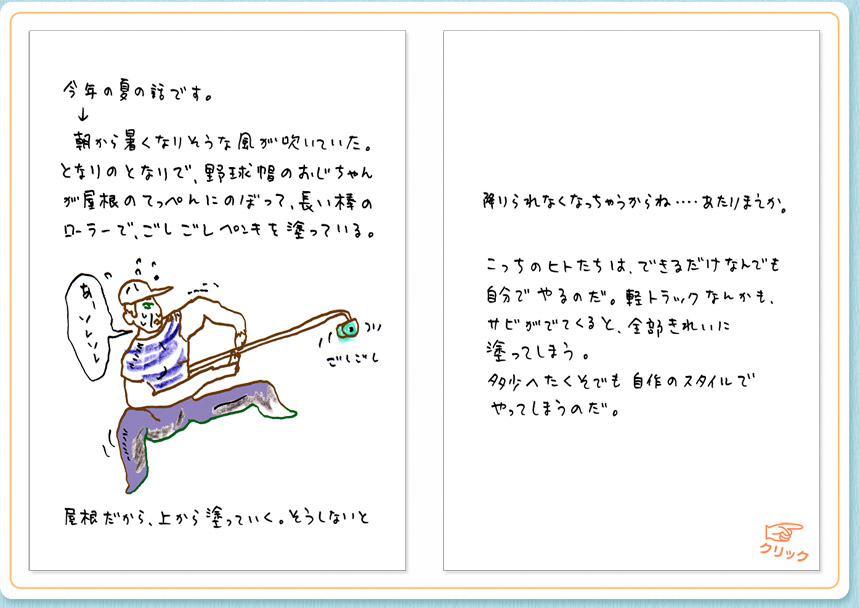 今年の夏の話です。
↓
朝から暑くなりそうな風が吹いていた。
となりのとなりで、野球帽のおじちゃん
が屋根のてっぺんにのぼって、長い棒の
ローラーで、ごしごしペンキを塗っている。
あーソレソレ
ごしごし
屋根だから、上から塗っていく。そうしないと
降りられなくなっちゃうからね‥‥あたりまえか。
こっちのヒトたちは、できるだけなんでも
自分でやるのだ。軽トラックなんかも、
サビがでてくると、全部きれいに
塗ってしまう。
多少へたくそでも自作のスタイルで
やってしまうのだ。
クリック